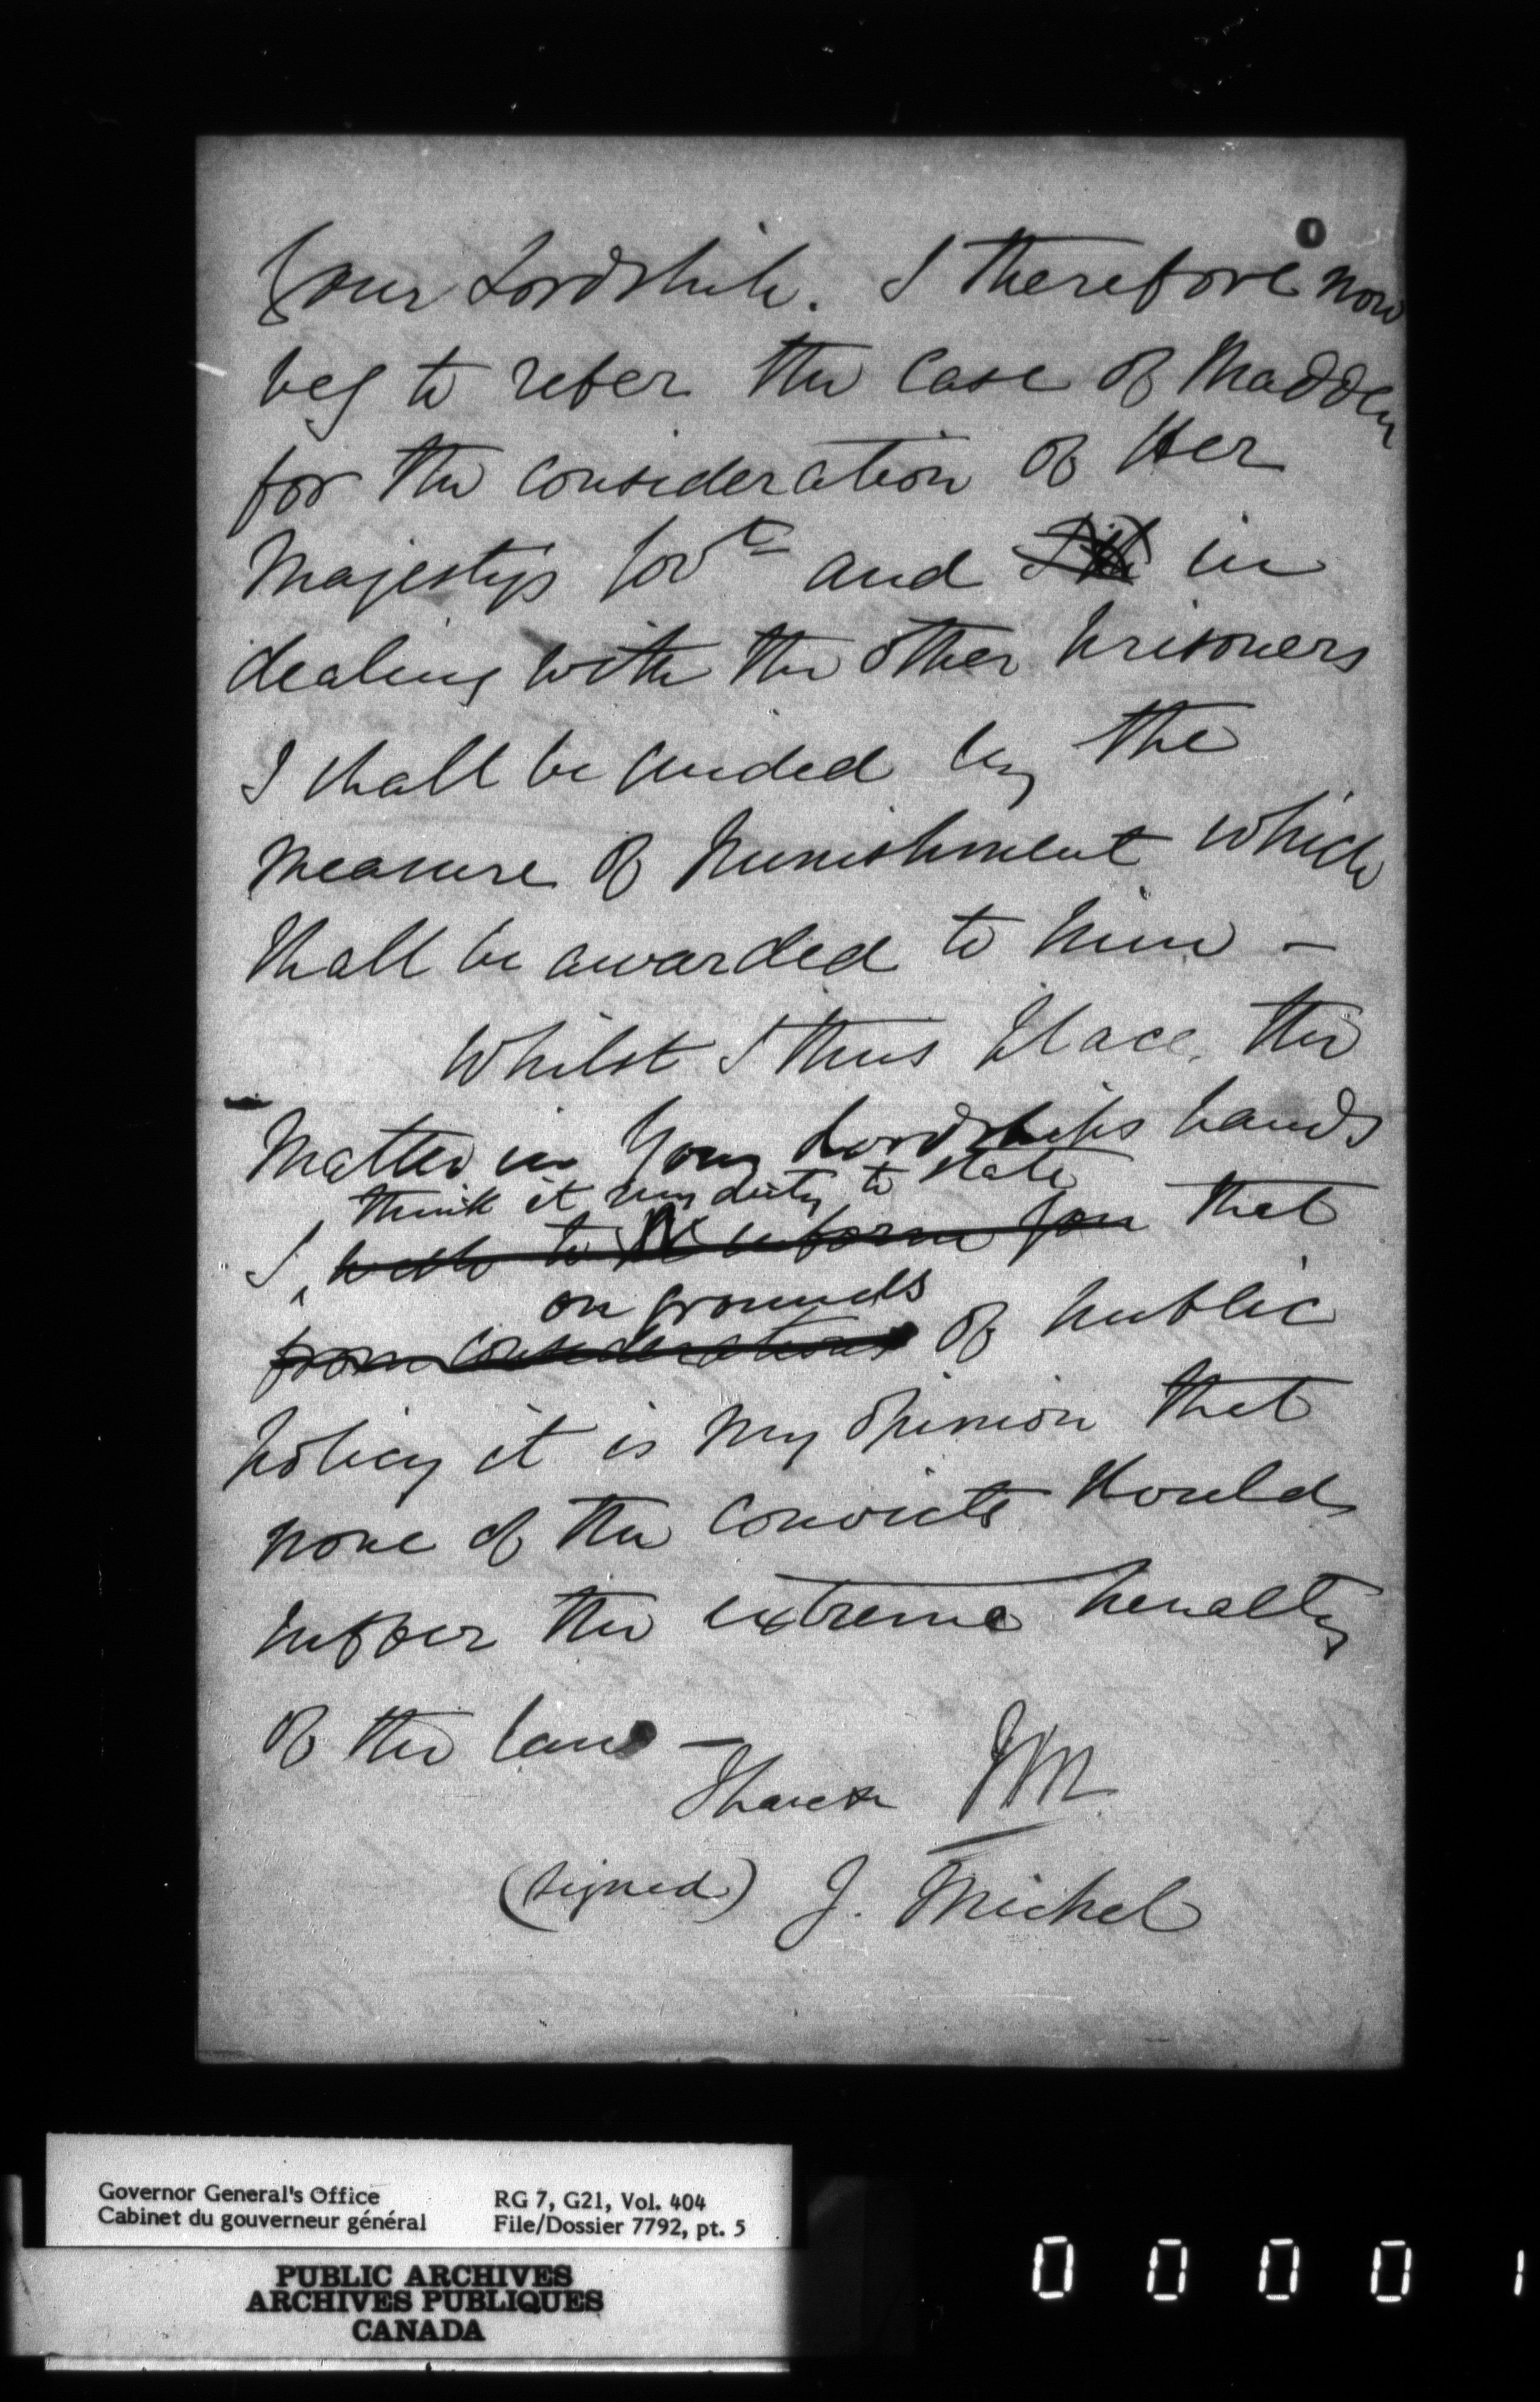 0
Your Lordship. I therefore now
beg to refer the case of Madden
for the consideration of Her
Majesty's Govt and in
dealing with the other prisoners
I shall be guided by the
measure of punishment which
shall be awarded to him –
Whilst I thus place the
matter in Your Lordships hands
think it my duty to state
I wish to inform you that
on grounds
from considerations of public
policy it is my opinion that
none of the convicts should
suffer the extreme penalty
of the law –
I have &c JM
(signed) J. Michel
Governor General's Office
Cabinet du gouverneur général
RG 7, G21, Vol. 404
File/Dossier 7792, pt. 5
PUBLIC ARCHIVES
ARCHIVES PUBLIQUES
CANADA
0 0 0 0 1